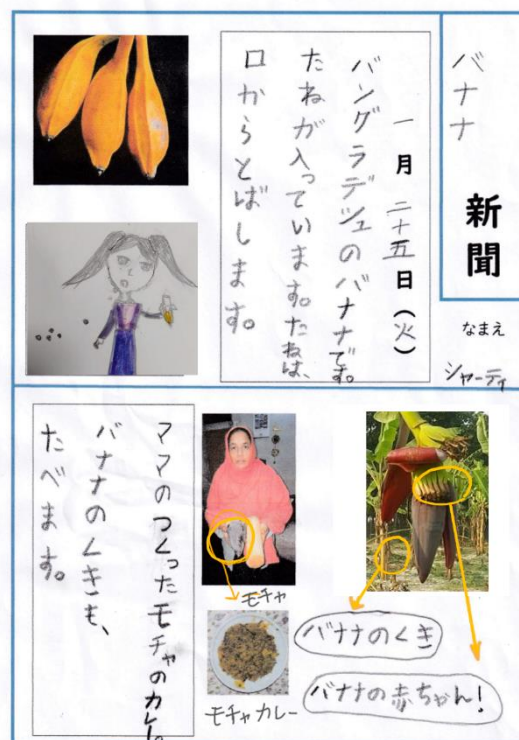 バナナ
新聞
なまえ
シャーティ
一月二十五日（火）
バングラデシュのバナナです。
たねが入っています。たねは、
口からとばします。
モチャ
モチャカレー
バナナのくき
バナナの赤ちゃん！
ママのつくったモチャのカレー。
バナナのくきも、
たべます。